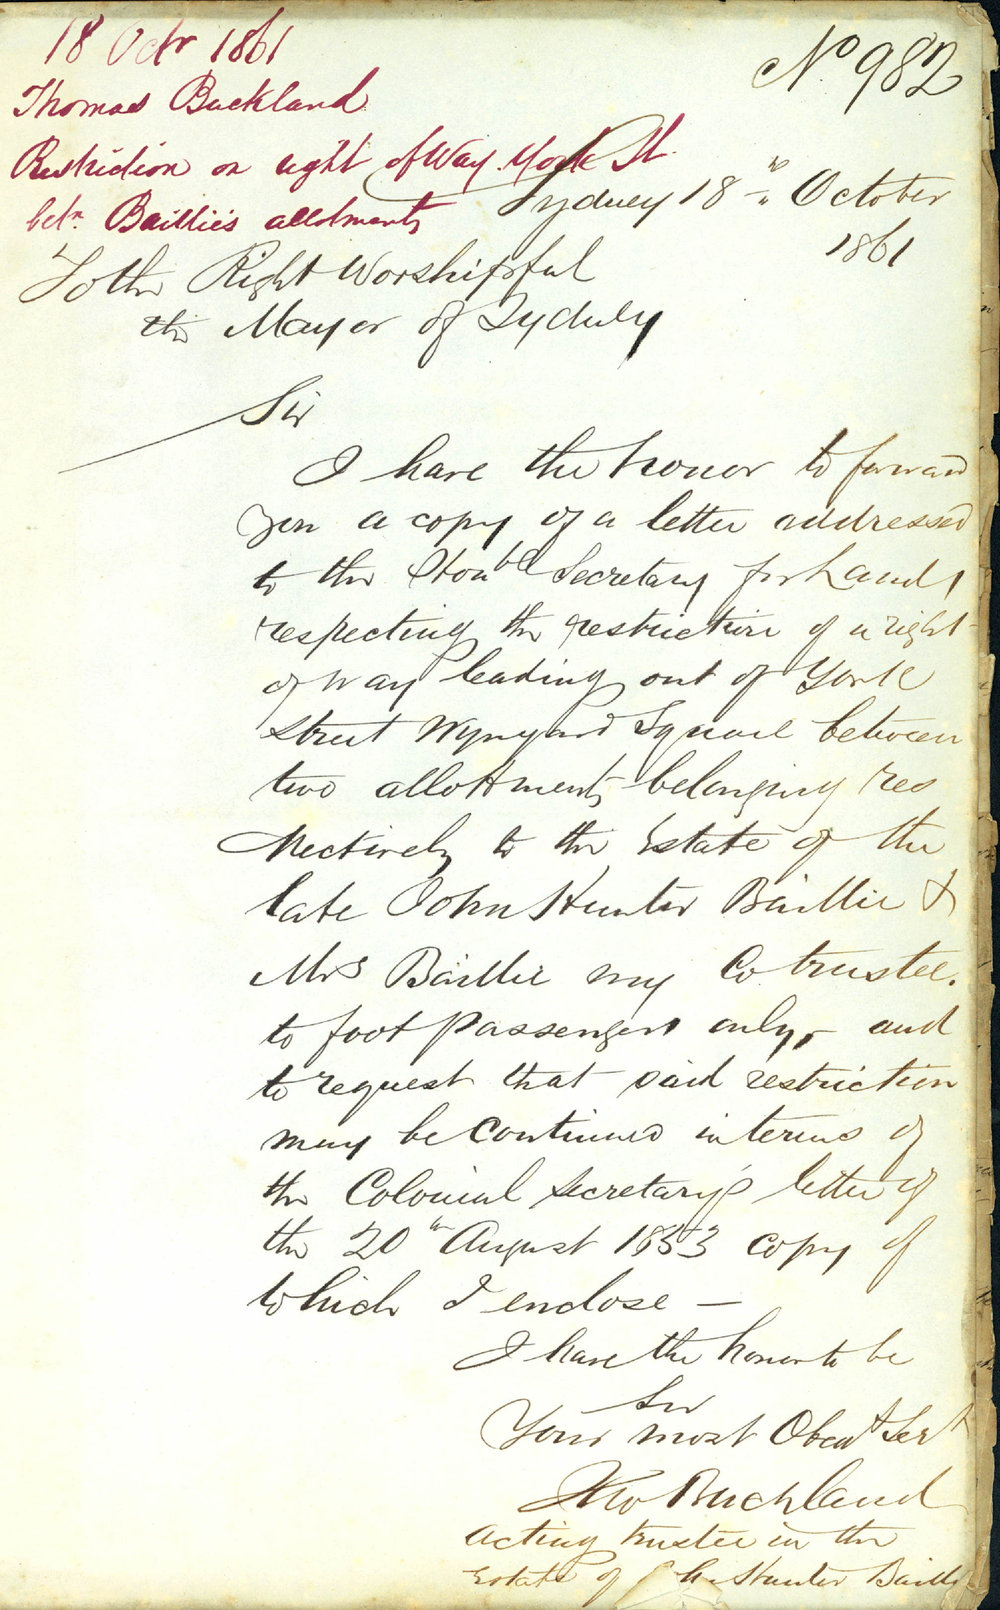 18 Octr 1861
No 982
Thomas Buckland
Restriction on right of Way York St.
betn. Baillie's allotments
Sydney 18th October
1861
To the Right Worshipful
the Mayor of Sydney
Sir
I have the honor to forward
you a copy of a letter addressed
to the Honble Secretary for Lands,
respecting the restriction of a right
of way leading out of York
Street Wynyard Square between
two allotments belonging res
pectively to the Estate of the
late John Hunter Baillie &
Mrs Baillie my Co trustee.
to foot passengers only, and
to request that said restriction
may be continued in terms of
the Colonial Secretary's letter of
the 20th August 1853 copy of
which I enclose —
I have the honor to be
Sir
Your most Obedt Servt
Tho Buckland
Acting trustee in the
Estate of Jno Hunter Baillie